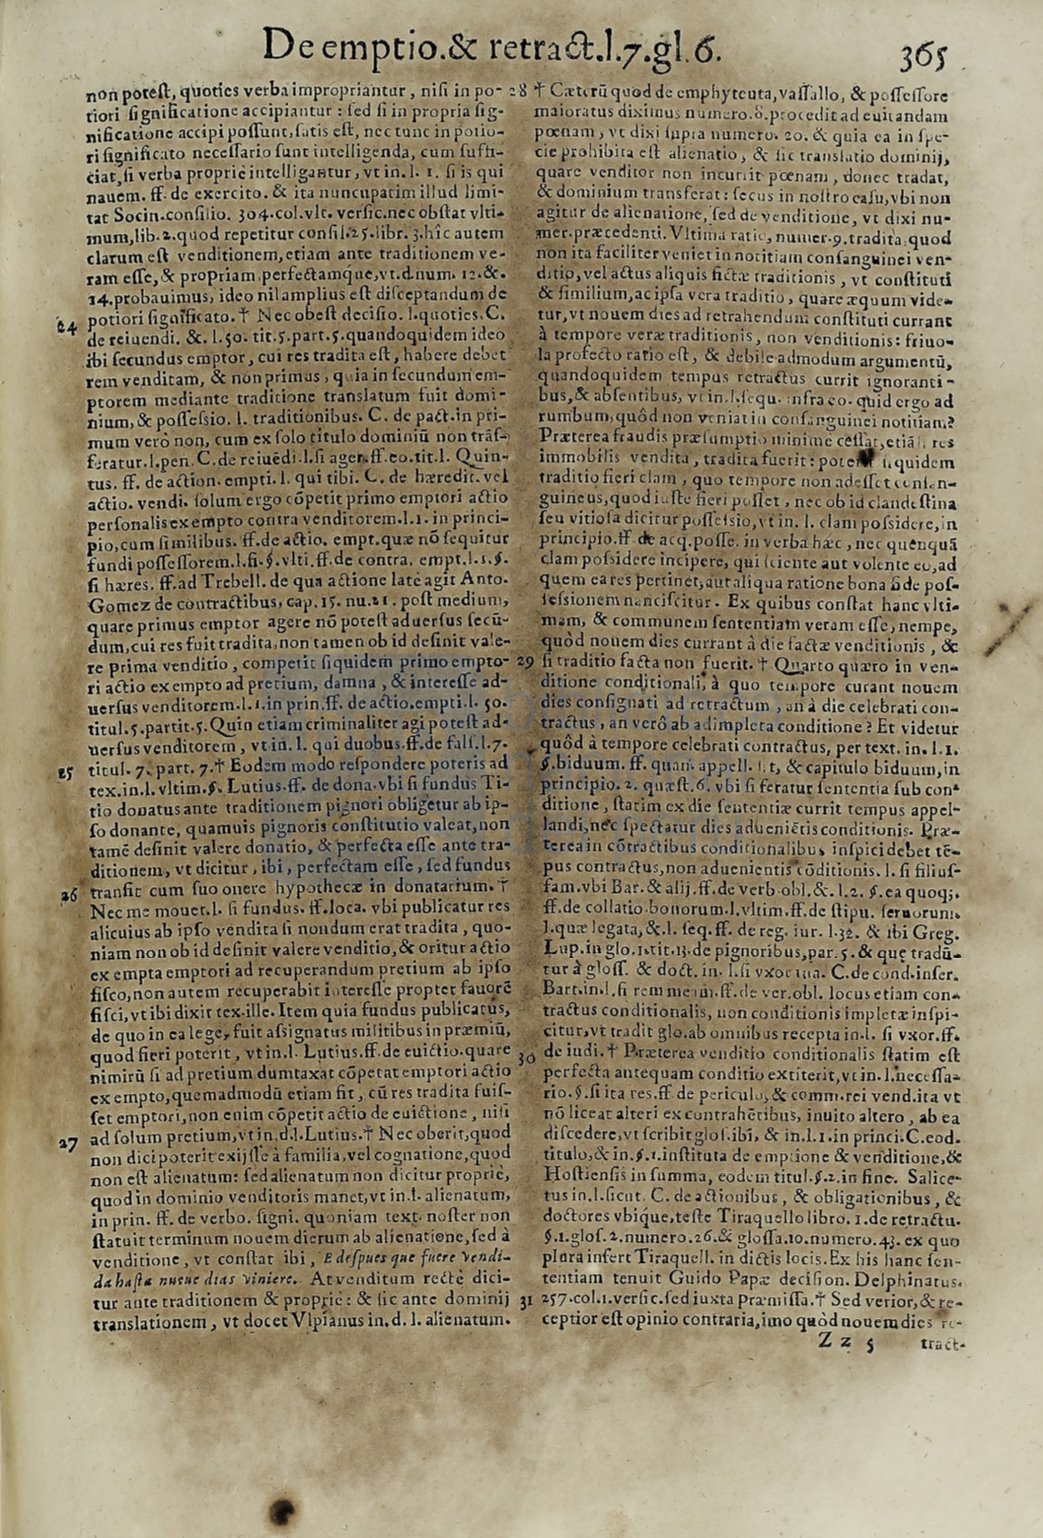 De emptio.& retract.l.7.gl.6.
365
non potest, quoties verba impropriantur, nisi in po-
tiori significatione accipiantur: sed si in propria sig-
nificatione accipi possunt, satis est, nec tunc in potio-
ri significato necessario sunt intelligenda, cum suffi-
ciat, si verba proprie intelligantur, vt in. l. 1. si is qui
nauem. ff. de exercito. & ita nuncupatim illud limi-
tat Socin. consilio. 304. col. vlt. versic. nec obstat vlti-
mum, lib. 2. quod repetitur consil. 25. libr. 3. hîc autem
clarum est venditionem, etiam ante traditionem ve-
ram esse, & propriam perfectamque, vt. d. num. 12. &.
14. probauimus, ideo nil amplius est disceptandum de
24 potiori significato. † Nec obest decisio. l. quoties. C.
de reiuendi. &. l. 50. tit. 5. part. 5. quandoquidem ideo
ibi secundus emptor, cui res tradita est, habere debet
rem venditam, & non primus, quia in secundum em-
ptorem mediante traditione translatum fuit domi-
nium, & possessio. l. traditionibus. C. de pact. in pri-
mum verò non, cum ex solo titulo dominiũ non trãs-
feratur. l. pen. C. de reiuẽdi. l. si ager. ff. eo. tit. l. Quin-
tus. ff. de action. empti. l. qui tibi. C. de hæredit. vel
actio. vendi. solum ergo cõpetit primo emptori actio
personalis ex empto contra venditorem. l. 1. in princi-
pio, cum similibus. ff. de actio. empt. quæ nõ sequitur
fundi possessorem. l. fi. §. vlti. ff. de contra. empt. l. 1. §.
si hæres. ff. ad Trebell. de qua actione latè agit Anto.
Gomez de contractibus, cap. 15. nu. 21. post medium,
quare primus emptor agere nõ potest aduersus secũ-
dum, cui res fuit tradita, non tamen ob id definit vale-
re prima venditio, competit siquidem primo empto-
ri actio ex empto ad pretium, damna, & interesse ad-
uersus venditorem. l. 1. in prin. ff. de actio. empti. l. 50.
titul. 5. partit. 5. Quin etiam criminaliter agi potest ad-
uersus venditorem, vt in. l. qui duobus. ff. de fals. l. 7.
25 titul. 7. part. 7. † Eodem modo respondere poteris ad
tex. in. l. vltim. §. Lutius. ff. de dona. vbi si fundus Ti-
tio donatus ante traditionem pignori obligetur ab ip-
so donante, quamuis pignoris constitutio valeat, non
tamẽ definit valere donatio, & perfecta esse ante tra-
ditionem, vt dicitur, ibi, perfectam esse, sed fundus
26 transit cum suo onere hypothecæ in donatarium. †
Nec me mouet. l. si fundus. ff. loca. vbi publicatur res
alicuius ab ipso vendita si nondum erat tradita, quo-
niam non ob id definit valere venditio, & oritur actio
ex empta emptori ad recuperandum pretium ab ipso
fisco, non autem recuperabit interesse propter fauorẽ
fisci, vt ibi dixit tex. ille. Item quia fundus publicatus,
de quo in ea lege, fuit assignatus militibus in præmiũ,
quod fieri poterit, vt in. l. Lutius. ff. de euictio. quare
nimirũ si ad pretium dumtaxat cõpetat emptori actio
ex empto, quemadmodũ etiam fit, cũ res tradita fuis-
set emptori, non enim cõpetit actio de euictione, nisi
27 ad solum pretium, vt in. d. l. Lutius. † Nec oberit, quod
non dici poterit exijsse à familia, vel cognatione, quod
non est alienatum: sed alienatum non dicitur propriè,
quod in dominio venditoris manet, vt in. l. alienatum,
in prin. ff. de verbo. signi. quoniam text. noster non
statuit terminum nouem dierum ab alienatione, sed à
venditione, vt constat ibi, E despues que fuere vendi-
da hasta nueue dias viniere. At venditum rectè dici-
tur ante traditionem & propriè: & sic ante dominij
translationem, vt docet Vlpianus in. d. l. alienatum.
28 † Cæterũ quod de emphyteuta, vassallo, & possessore
maioratus diximus numero. 8. procedit ad euitandam
pœnam, vt dixi supra numero. 20. & quia ea in spe-
cie prohibita est alienatio, & sic translatio dominij,
quare venditor non incurrit pœnam, donec tradat,
& dominium transferat: secus in nostro casu, vbi non
agitur de alienatione, sed de venditione, vt dixi nu-
mer. præcedenti. Vltima ratio, numer. 9. tradita, quod
non ita faciliter veniet in notitiam consanguinei ven-
ditio, vel actus aliquis fictæ traditionis, vt constituti
& similium, ac ipsa vera traditio, quare æquum vide-
tur, vt nouem dies ad retrahendum constituti currant
à tempore veræ traditionis, non venditionis: friuo-
la profecto ratio est, & debile admodum argumentũ,
quandoquidem tempus retractus currit ignoranti-
bus, & absentibus, vt in. l. sequ. infra eo. quid ergo ad
rumbum, quôd non veniat in consanguinei notitiam?
Præterea fraudis præsumptio minimè cessat, etiã si res
immobilis vendita, tradita fuerit: potest siquidem
traditio fieri clam, quo tempore non adesset consan-
guineus, quod iuste fieri posset, nec ob id clandestina
seu vitiosa dicitur possessio, vt in. l. clam possidere, in
principio. ff. de acq. posse. in verba hæc, nec quenquã
clam possidere incipere, qui sciente aut volente eo, ad
quem ea res pertinet, aut aliqua ratione bona fide pos-
sessionem nanciscitur. Ex quibus constat hanc vlti-
mam, & communem sententiam veram esse, nempe,
quòd nouem dies currant à die factæ venditionis, &
29 si traditio facta non fuerit. † Quarto quæro in ven-
ditione conditionali, à quo tempore curant nouem
dies consignati ad retractum, an à die celebrati con-
tractus, an verò ab adimpleta conditione? Et videtur
quôd à tempore celebrati contractus, per text. in. l. 1.
§. biduum. ff. quan. appell. sit, & capitulo biduum, in
principio. 2. quæst. 6. vbi si feratur sententia sub con-
ditione, statim ex die sententiæ currit tempus appel-
landi, nec spectatur dies adueniẽtis conditionis. Præ-
terea in cõtractibus conditionalibus inspici debet tẽ-
pus contractus, non aduenientis cõditionis. l. si filius-
fam. vbi Bar. & alij. ff. de verb. obl. &. l. 2. §. ea quoq;.
ff. de collatio. bonorum. l. vltim. ff. de stipu. seruorum.
l. quæ legata, &. l. seq. ff. de reg. iur. l. 32. & ibi Greg.
Lup. in glo. 1. tit. 13. de pignoribus, par. 5. & que tradũ-
tur à gloss. & doct. in. l. si vxor tua. C. de cond. inser.
Bart. in. l. si rem meam. ff. de ver. obl. locus etiam con-
tractus conditionalis, non conditionis impletæ inspi-
citur, vt tradit glo. ab omnibus recepta in. l. si vxor. ff.
30 de iudi. † Præterea venditio conditionalis statim est
perfecta antequam conditio extiterit, vt in. l. necessa-
rio. §. si ita res. ff. de periculo, & comm. rei vend. ita vt
nõ liceat alteri ex contrahẽtibus, inuito altero, ab ea
discedere, vt scribit glos. ibi, & in. l. 1. in princi. C. eod.
titulo, & in. §. 1. instituta de emptione & venditione, &
Hostiensis in summa, eodem titul. §. 2. in fine. Salice-
tus in. l. sicut. C. de actionibus, & obligationibus, &
doctores vbique, teste Tiraquello libro. 1. de retractu.
§. 1. glos. 2. numero. 26. & glossa. 10. numero. 43. ex quo
plura infert Tiraquell. in dictis locis. Ex his hanc sen-
tentiam tenuit Guido Papæ decision. Delphinatus.
31 257. col. 1. versic. sed iuxta præmissa. † Sed verior, & re-
ceptior est opinio contraria, imo quòd nouem dies re-
Z z 5
tract-